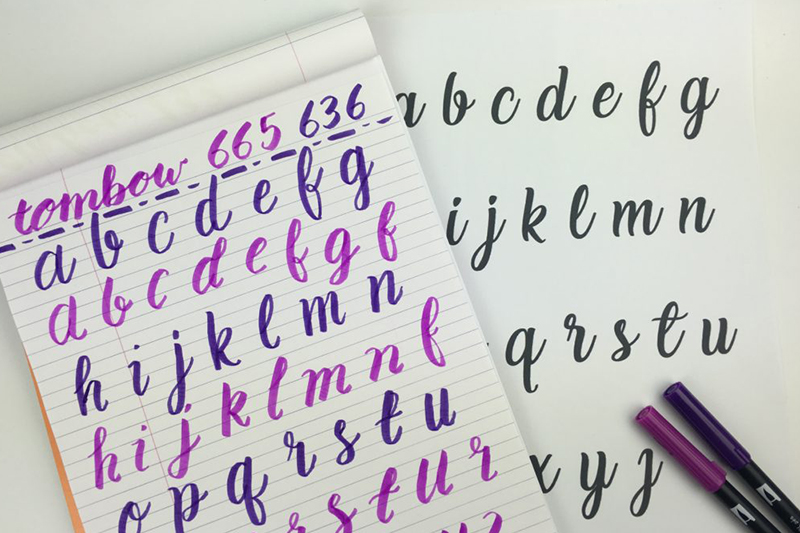 tombow 665 636
a b c d e f g
a b c d e f g f
h i j k l m n
h i j k l m n f
o p q r s t u
r s t u r
y z
a b c d e f g
i j k l m n
q r s t u
x y z